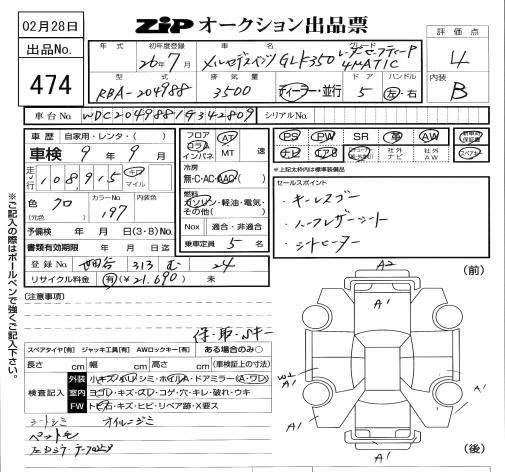 02月28日
ZiP オークション出品票
出品No.
474
年式 初年度登録 車名 グレード
26年7月 メルセデスベンツ GLK350 4MATIC
型式 排気量 ドア ハンドル
RBA-204988 3500 ディーラー・並行 5 左・右
評価点
4
内装
B
車台No. WDC2049881G342809 シリアルNo.
車歴 自家用・レンタ・( )
車検 9年9月
走行 108,915 キロ マイル
色 クロ カラーNo. 197 内装色
(元色)
予備検 年 月 日(3・8)No.
書類有効期限 年 月 日迄
登録No. 世田谷 313 む 24
リサイクル料金 有(¥21,690) 未
フロア コラム インパネ AT MT 速
冷房 無・C・AC・AAC
燃料 ガソリン・軽油・電気・その他( )
Nox 適合・非適合
乗車定員 5 名
PS PW SR 革 AW
ナビ エアB 社外ナビ 社外AW
*上記太枠内は標準装備品
セールスポイント
・キーレスゴー
・ハーフレザーシート
・シートヒーター
(注意事項)
保・取・Sキー
スペアタイヤ[有] ジャッキ工具[有] AWロックキー[有] ある場合のみ○
長さ cm 幅 cm 高さ cm (車検証上の寸法)
検査記入
外装 小キズ・ボリ・シミ・ホイルA・ドアミラー(A・ワレ)
室内 ヨゴレ・キズ・スレ・コゲ・穴・キレ・破れ・ウキ
FW トビ石・キズ・ヒビ・リペア跡・X要ス
シートシミ オイルニジミ
ペットモ
(前)
A2
A1
A1
A1
A1
A1
A1
A1
(後)
※ご記入の際はボールペンで強くご記入下さい。